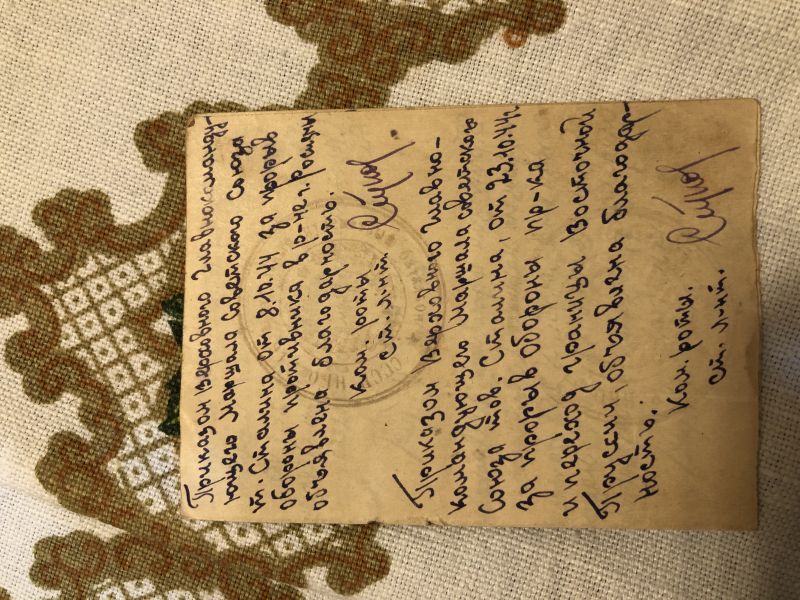 Приказом Верховного Главнокоманду-
ющего Маршала Советского Союза
т. Сталина от 8.10.44 за прорыв
обороны противника в р-не г.
объявлена благодарность.
Ком. роты
ст. л-нт.
Приказом Верховного Главно-
командующего Маршала советского
Союза тов. Сталина, от 23.10.44г.
за прорыв обороны пр-ка
и переход границы Восточной
Пруссии, объявлена благодар-
ность.
Ком. роты.
ст. л-нт.